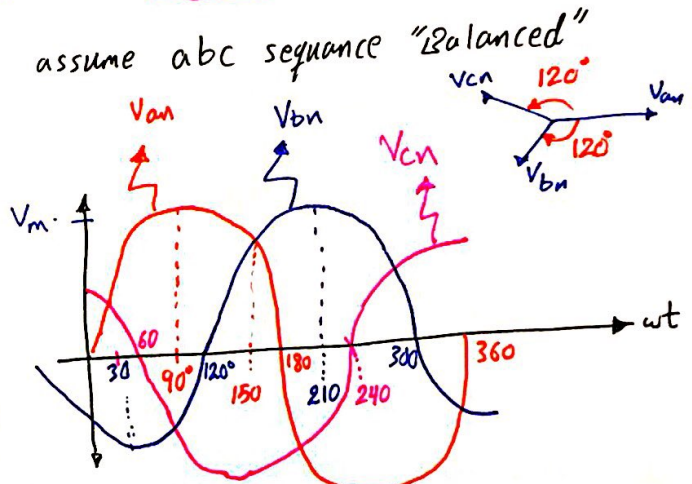 assume abc sequance "Balanced"
Vcn 120° Van
120°
Vbn
Van Vbn Vcn
Vm
ωt
30 60 90° 120° 150 180 210 240 300 360